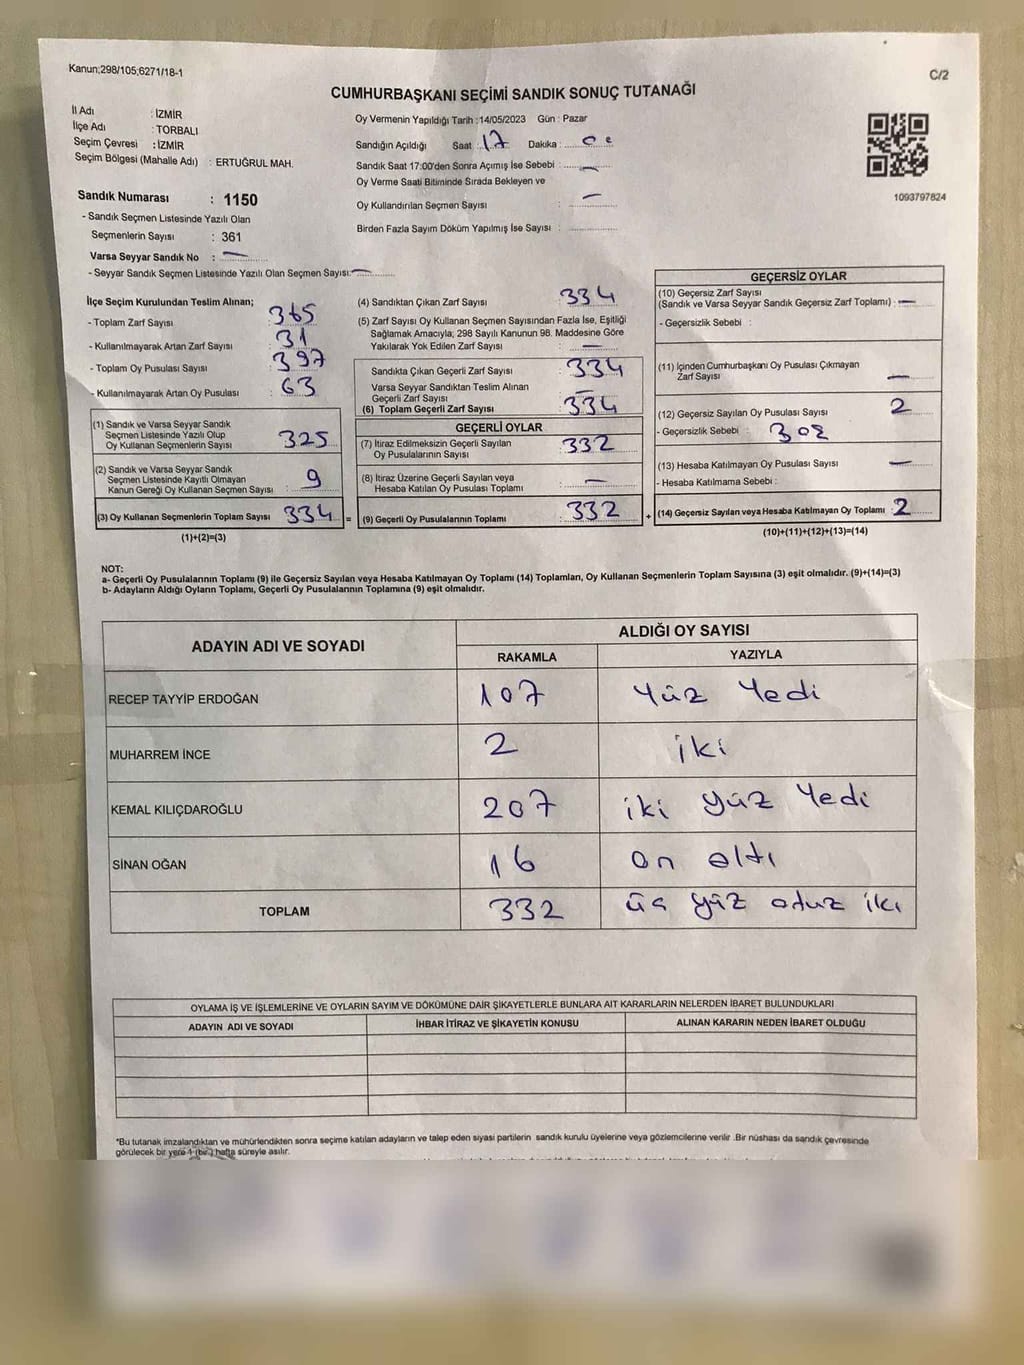 Kanun;298/105;6271/18-1
C/2
CUMHURBAŞKANI SEÇİMİ SANDIK SONUÇ TUTANAĞI
İl Adı : İZMİR
İlçe Adı : TORBALI
Seçim Çevresi : İZMİR
Seçim Bölgesi (Mahalle Adı) : ERTUĞRUL MAH.
Sandık Numarası : 1150
- Sandık Seçmen Listesinde Yazılı Olan
Seçmenlerin Sayısı : 361
Varsa Seyyar Sandık No : —
- Seyyar Sandık Seçmen Listesinde Yazılı Olan Seçmen Sayısı: —
Oy Vermenin Yapıldığı Tarih :14/05/2023 Gün : Pazar
Sandığın Açıldığı Saat : 17 Dakika :
Sandık Saat 17:00'den Sonra Açımış İse Sebebi : —
Oy Verme Saati Bitiminde Sırada Bekleyen ve
Oy Kullandırılan Seçmen Sayısı : —
Birden Fazla Sayım Döküm Yapılmış İse Sayısı :
1093797824
İlçe Seçim Kurulundan Teslim Alınan;
- Toplam Zarf Sayısı : 365
- Kullanılmayarak Artan Zarf Sayısı : 31
- Toplam Oy Pusulası Sayısı : 397
- Kullanılmayarak Artan Oy Pusulası : 63
(1) Sandık ve Varsa Seyyar Sandık
Seçmen Listesinde Yazılı Olup
Oy Kullanan Seçmenlerin Sayısı : 325
(2) Sandık ve Varsa Seyyar Sandık
Seçmen Listesinde Kayıtlı Olmayan
Kanun Gereği Oy Kullanan Seçmen Sayısı : 9
(3) Oy Kullanan Seçmenlerin Toplam Sayısı : 334 =
(1)+(2)=(3)
(4) Sandıktan Çıkan Zarf Sayısı : 334
(5) Zarf Sayısı Oy Kullanan Seçmen Sayısından Fazla İse, Eşitliği
Sağlamak Amacıyla; 298 Sayılı Kanunun 98. Maddesine Göre
Yakılarak Yok Edilen Zarf Sayısı : —
Sandıkta Çıkan Geçerli Zarf Sayısı : 334
Varsa Seyyar Sandıktan Teslim Alınan
Geçerli Zarf Sayısı : —
(6) Toplam Geçerli Zarf Sayısı : 334
GEÇERLİ OYLAR
(7) İtiraz Edilmeksizin Geçerli Sayılan
Oy Pusulalarının Sayısı : 332
(8) İtiraz Üzerine Geçerli Sayılan veya
Hesaba Katılan Oy Pusulası Toplamı : —
(9) Geçerli Oy Pusulalarının Toplamı : 332 +
GEÇERSİZ OYLAR
(10) Geçersiz Zarf Sayısı
(Sandık ve Varsa Seyyar Sandık Geçersiz Zarf Toplamı) : —
- Geçersizlik Sebebi :
(11) İçinden Cumhurbaşkanı Oy Pusulası Çıkmayan
Zarf Sayısı : —
(12) Geçersiz Sayılan Oy Pusulası Sayısı : 2
- Geçersizlik Sebebi :
(13) Hesaba Katılmayan Oy Pusulası Sayısı : —
- Hesaba Katılmama Sebebi :
(14) Geçersiz Sayılan veya Hesaba Katılmayan Oy Toplamı : 2
(10)+(11)+(12)+(13)=(14)
NOT:
a- Geçerli Oy Pusulalarının Toplamı (9) ile Geçersiz Sayılan veya Hesaba Katılmayan Oy Toplamı (14) Toplamları, Oy Kullanan Seçmenlerin Toplam Sayısına (3) eşit olmalıdır. (9)+(14)=(3)
b- Adayların Aldığı Oyların Toplamı, Geçerli Oy Pusulalarının Toplamına (9) eşit olmalıdır.
ADAYIN ADI VE SOYADI ALDIĞI OY SAYISI
RAKAMLA YAZIYLA
RECEP TAYYİP ERDOĞAN 107 Yüz Yedi
MUHARREM İNCE 2 iki
KEMAL KILIÇDAROĞLU 207 iki yüz Yedi
SİNAN OĞAN 16 on altı
TOPLAM 332 üç yüz otuz iki
OYLAMA İŞ VE İŞLEMLERİNE VE OYLARIN SAYIM VE DÖKÜMÜNE DAİR ŞİKAYETLERLE BUNLARA AİT KARARLARIN NELERDEN İBARET BULUNDUKLARI
ADAYIN ADI VE SOYADI İHBAR İTİRAZ VE ŞİKAYETİN KONUSU ALINAN KARARIN NEDEN İBARET OLDUĞU
*Bu tutanak imzalandıktan ve mühürlendikten sonra seçime katılan adayların ve talep eden siyasi partilerin sandık kurulu üyelerine veya gözlemcilerine verilir .Bir nüshası da sandık çevresinde
görülecek bir yere 1 (bir ) hafta süreyle asılır.